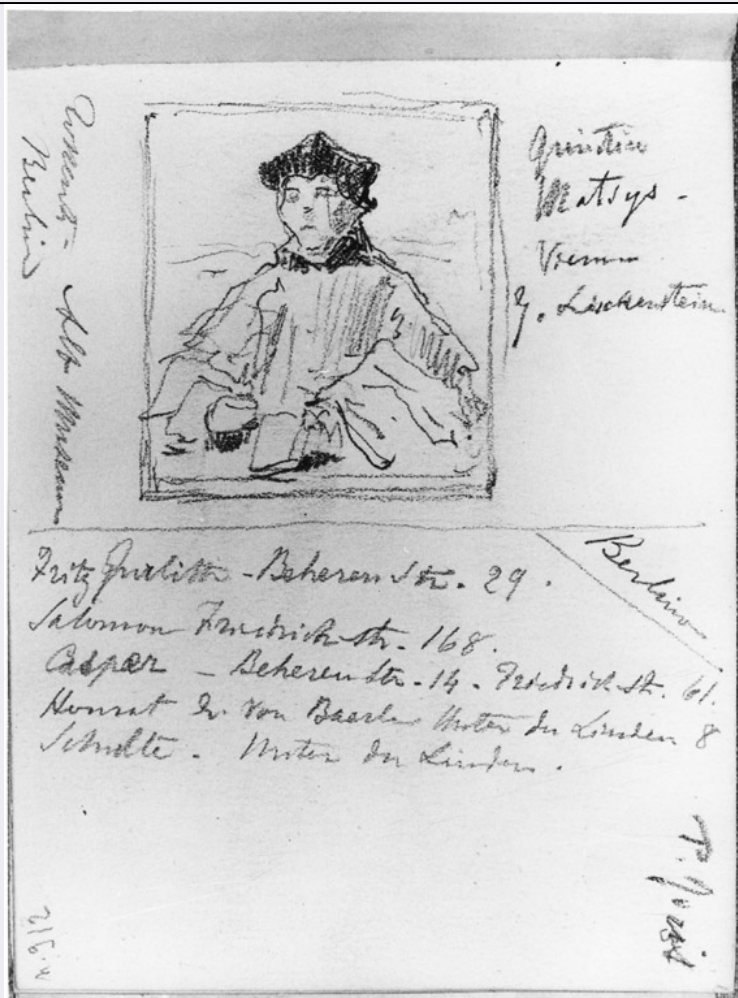 Quintin
Matsys -
Vienna
g. Liechenstein
Alt Museum
Berlin
Fritz Gurlitt - Beherenstr. 29.
Berlino
Salomon Friedrichstr. 168.
Casper - Beherenstr. 14. Friedrichst. 61.
Honrat & Von Baerle Unter den Linden 8
Schulte. Unter den Linden.
n. 912